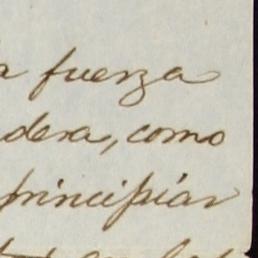 a fuerza
dera, como
principiar